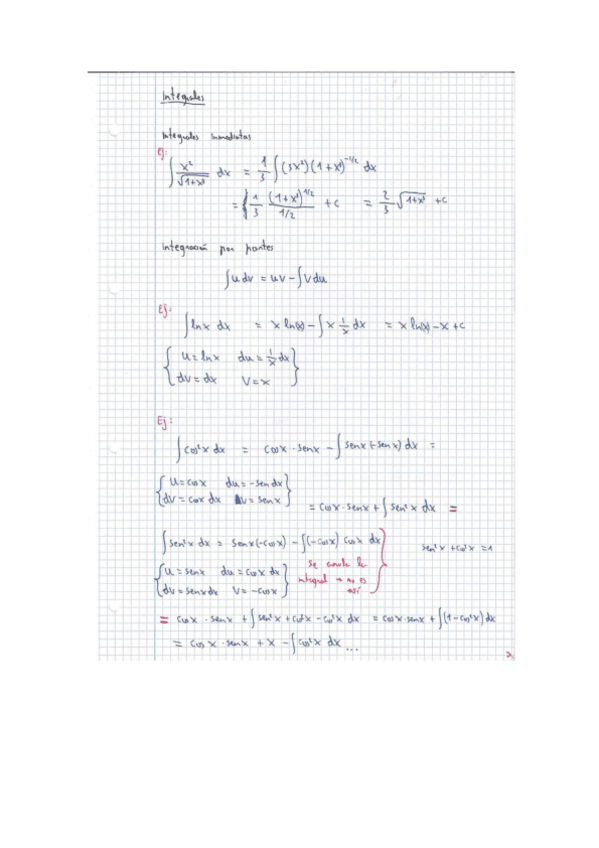 Integrales
Integrales inmediatas
Ej:
∫ x²/√(1+x³) dx = 1/3 ∫ (3x²)(1+x³)^(-1/2) dx
= 1/3 (1+x³)^(1/2) / (1/2) + c = 2/3 √(1+x³) + c
integración por partes
∫ u dv = uv - ∫ v du
Ej:
∫ ln x dx = x ln(x) - ∫ x 1/x dx = x ln(x) - x + c
{ u = ln x du = 1/x dx }
{ dv = dx v = x }
Ej:
∫ cos²x dx = cosx · senx - ∫ senx (-senx) dx =
{ u = cosx du = -sen dx }
{ dv = cosx dx v = senx }
= cosx · senx + ∫ sen²x dx =
∫ sen²x dx = senx (-cosx) - ∫ (-cosx) cosx dx }
sen²x + cos²x = 1
{ u = senx du = cosx dx }
{ dv = senx dx v = -cosx }
se anula la
integral → no es
así
= cosx · senx + ∫ sen²x + cos²x - cos²x dx = cosx · senx + ∫ (1 - cos²x) dx
= cosx · senx + x - ∫ cos²x dx ...